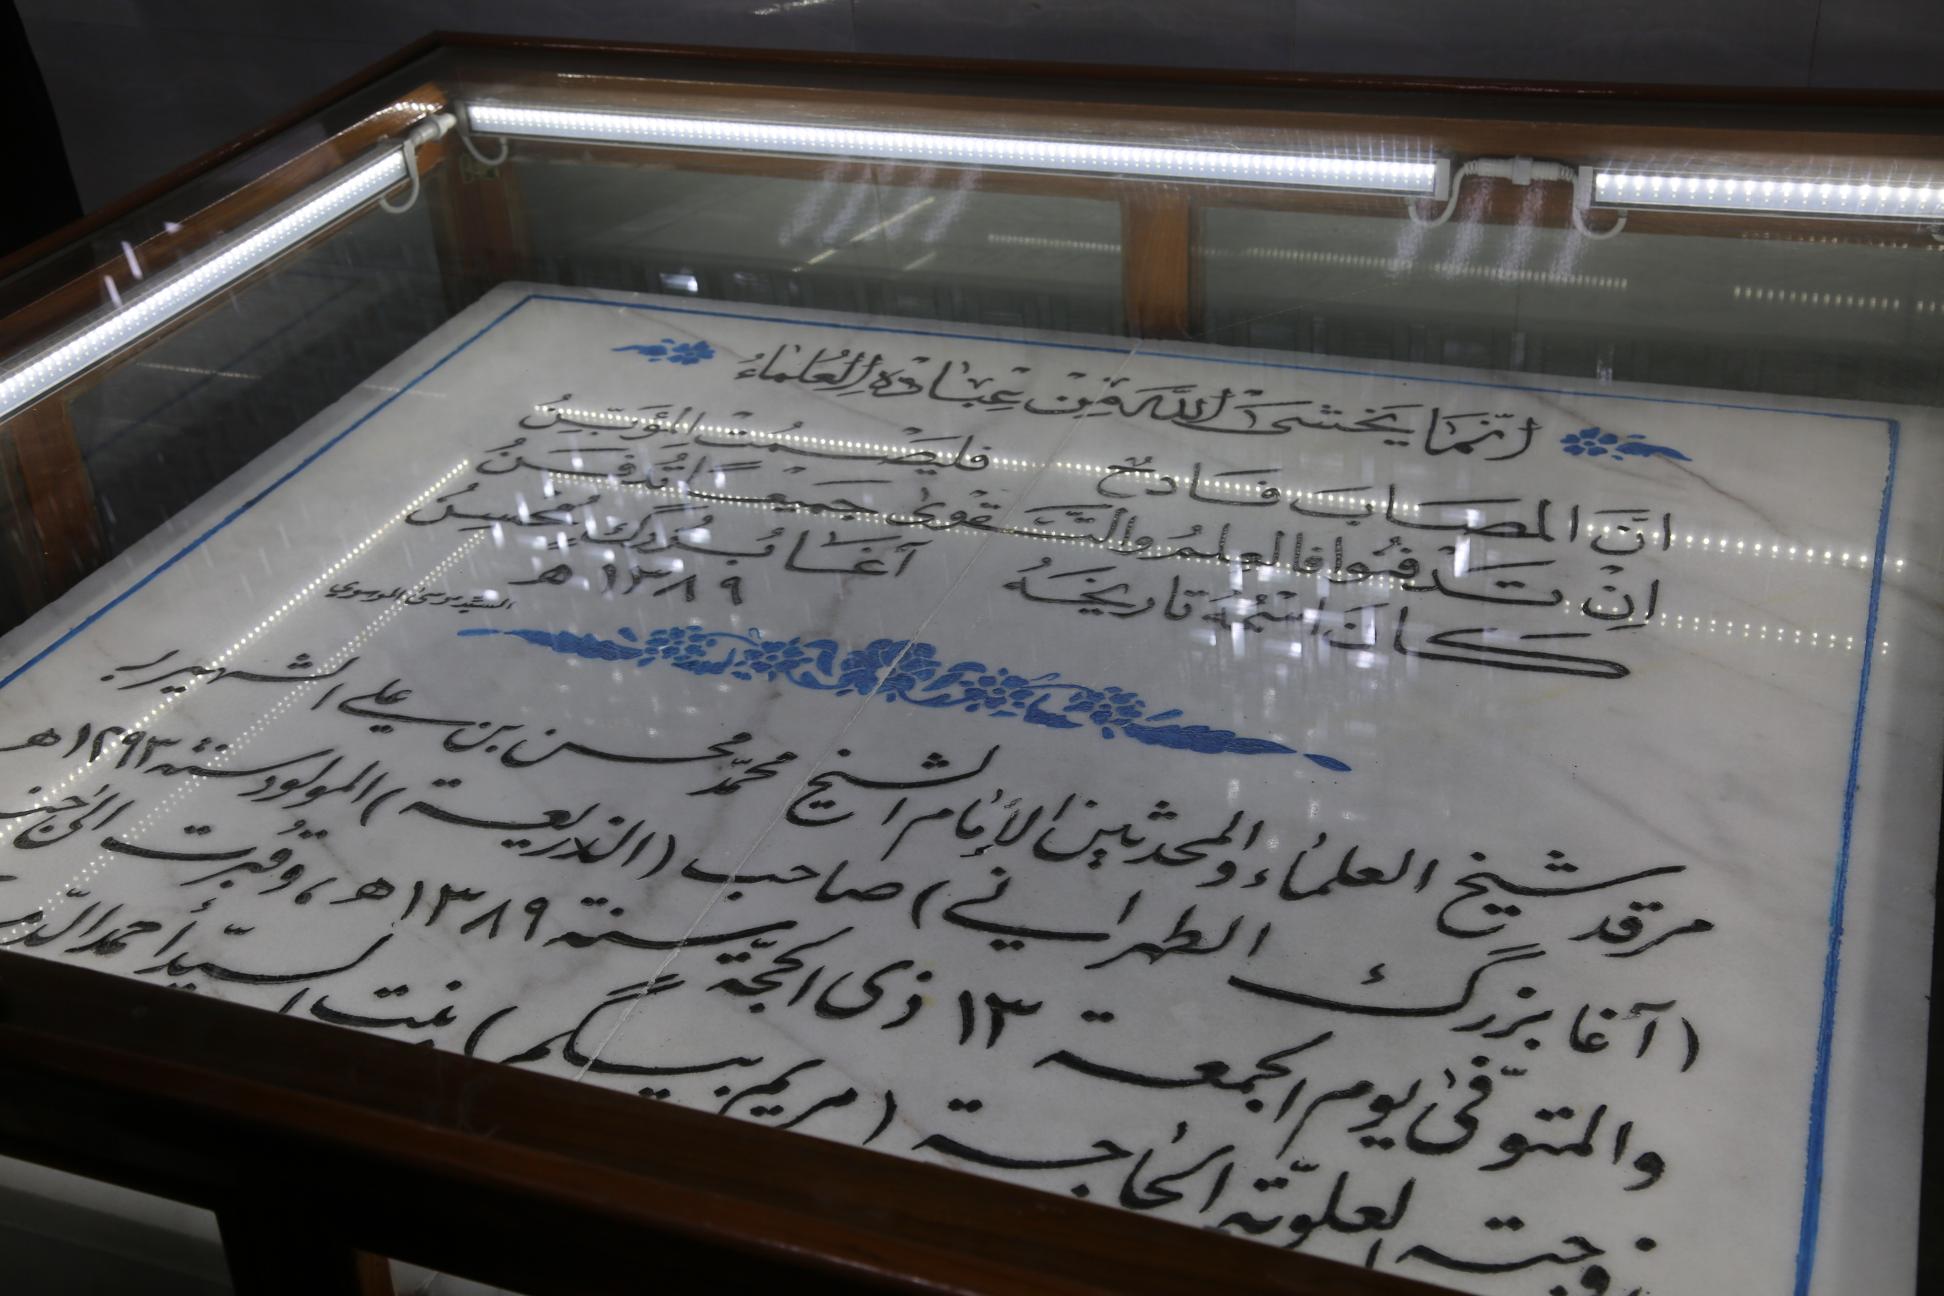 إنّما يَخشىَ اللهَ مِن عِبَادِهِ العُلَماءُ
انَّ المصَابَ فَادحٌ فليَصْمُت المؤَبّنُ
اِنْ تَدْفِنُوا فالعِلمُ والتَّقوىٰ جَميعًا تُدفَنُ
كانَ اسْمُهُ تاريخَهُ آغَا بُزُركَ مُحْسِنُ
١٣٨٩ هـ
السيد موسى الموسوي
مرقد شيخ العلماء والمحدثين الإمام الشيخ محمّد محسن بن علي الشهير بـ
(آغا بزرگ الطهراني) صاحب (الذريعة) المولود سنة ١٢٩٣ هـ
والمتوّفىٰ يوم الجمعة ١٣ ذي الحجّة سنة ١٣٨٩ هـ، وقُبرت الى جنبه
زوجته العلويّة الحاجة (مريم بيگم) بنت السيّد أحمد